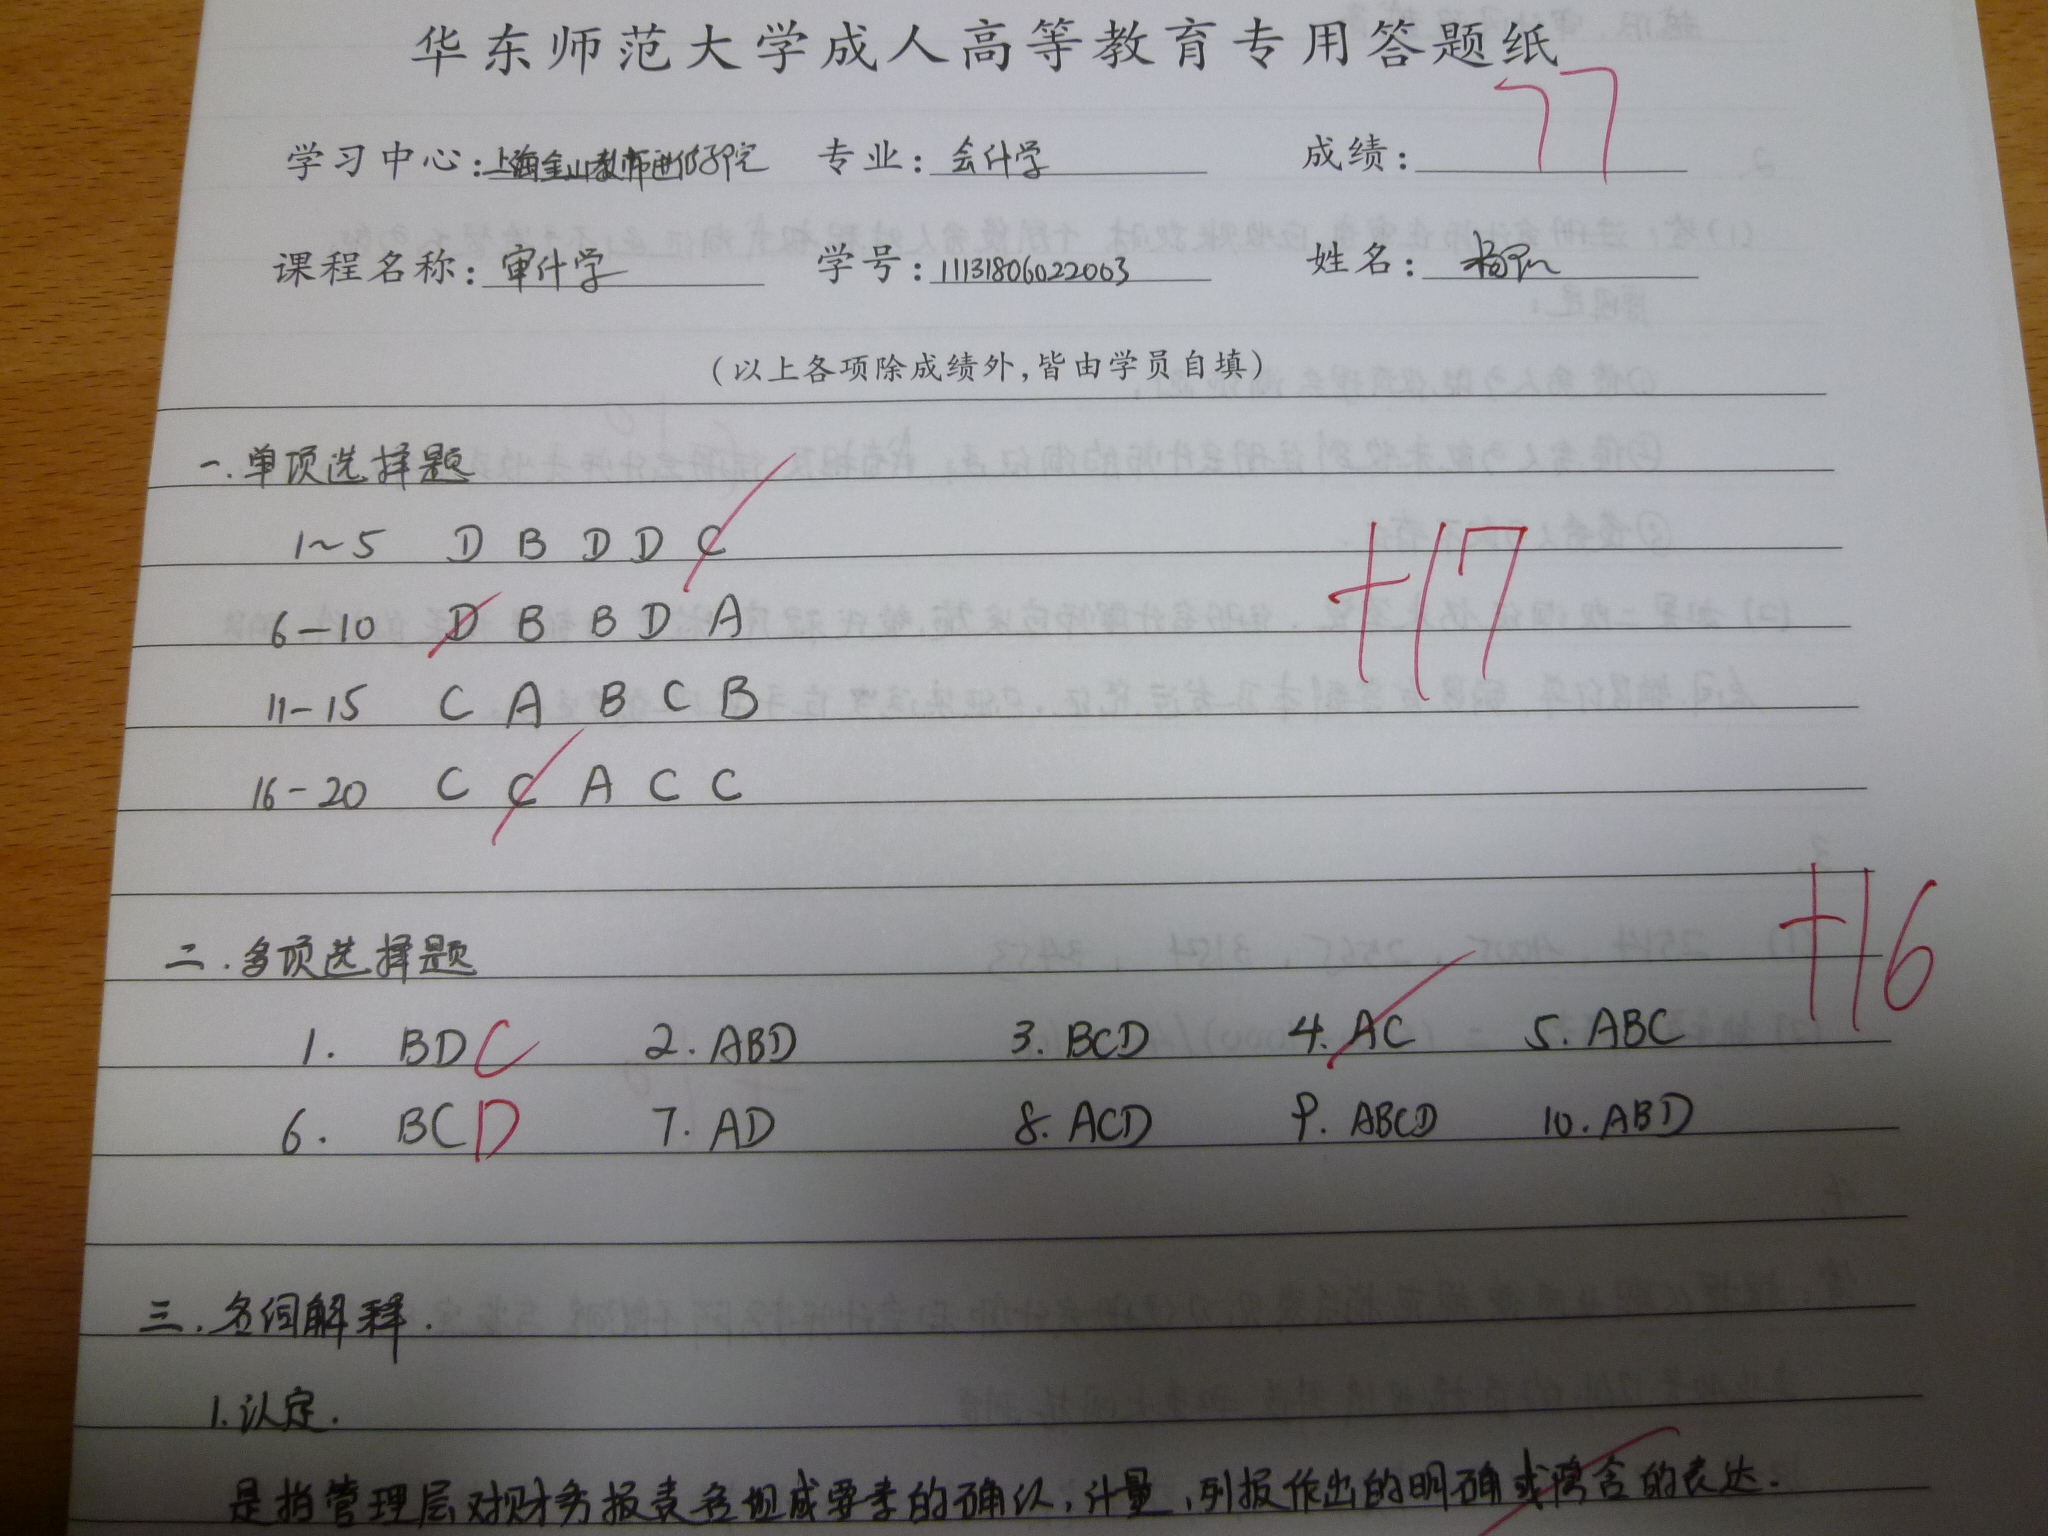 华东师范大学成人高等教育专用答题纸
学习中心:上海金山教师进修学院 专业:会计学 成绩:77
课程名称:审计学 学号:11131806022003 姓名:杨
(以上各项除成绩外,皆由学员自填)
一.单项选择题
1~5 D B D D C
+17
6-10 D B B D A
11-15 C A B C B
16-20 C C A C C
+16
二.多项选择题
1. BDC 2. ABD 3. BCD 4. AC 5. ABC
6. BCD 7. AD 8. ACD 9. ABCD 10. ABD
三.名词解释.
1.认定.
是指管理层对财务报表各组成要素的确认,计量,列报作出的明确或隐含的表达.